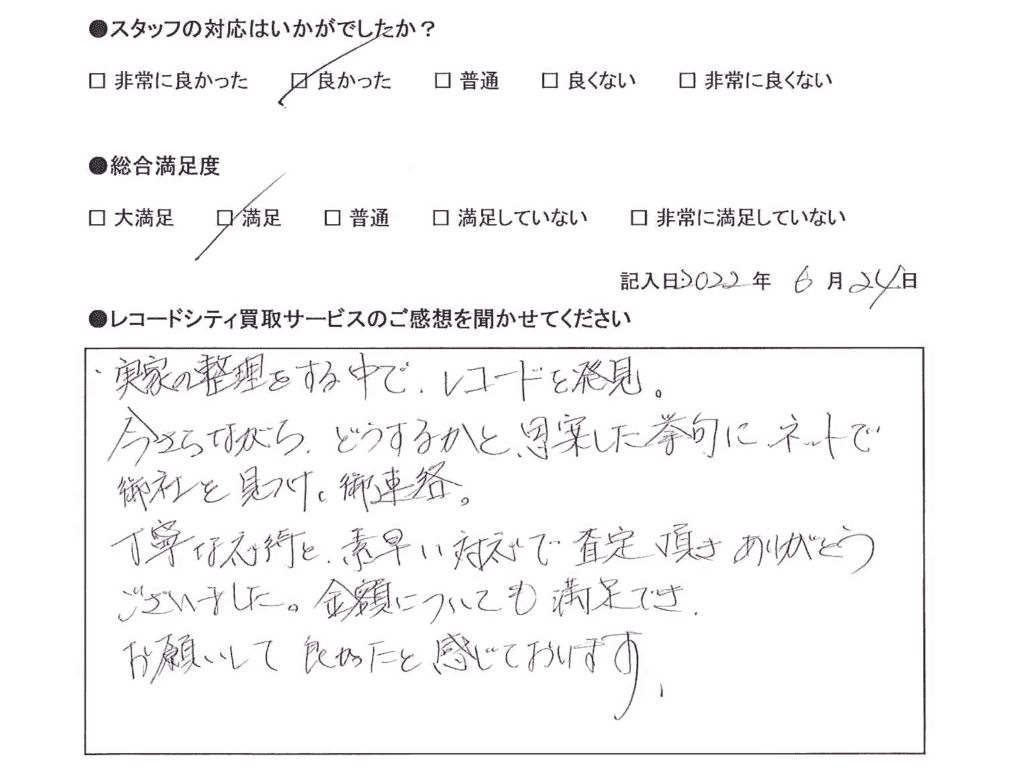 ●スタッフの対応はいかがでしたか？
□ 非常に良かった □ 良かった □ 普通 □ 良くない □ 非常に良くない
●総合満足度
□ 大満足 □ 満足 □ 普通 □ 満足していない □ 非常に満足していない
記入日:2022年 6月24日
●レコードシティ買取サービスのご感想を聞かせてください
・実家の整理をする中で、レコードを発見。
今さらながら、どうするかと、思案した挙句に ネットで
御社を見つけ、御連絡。
丁寧な と、素早い対応で 査定 頂き ありがとう
ございました。金額についても 満足でき、
お願いして 良かったと 感じております、